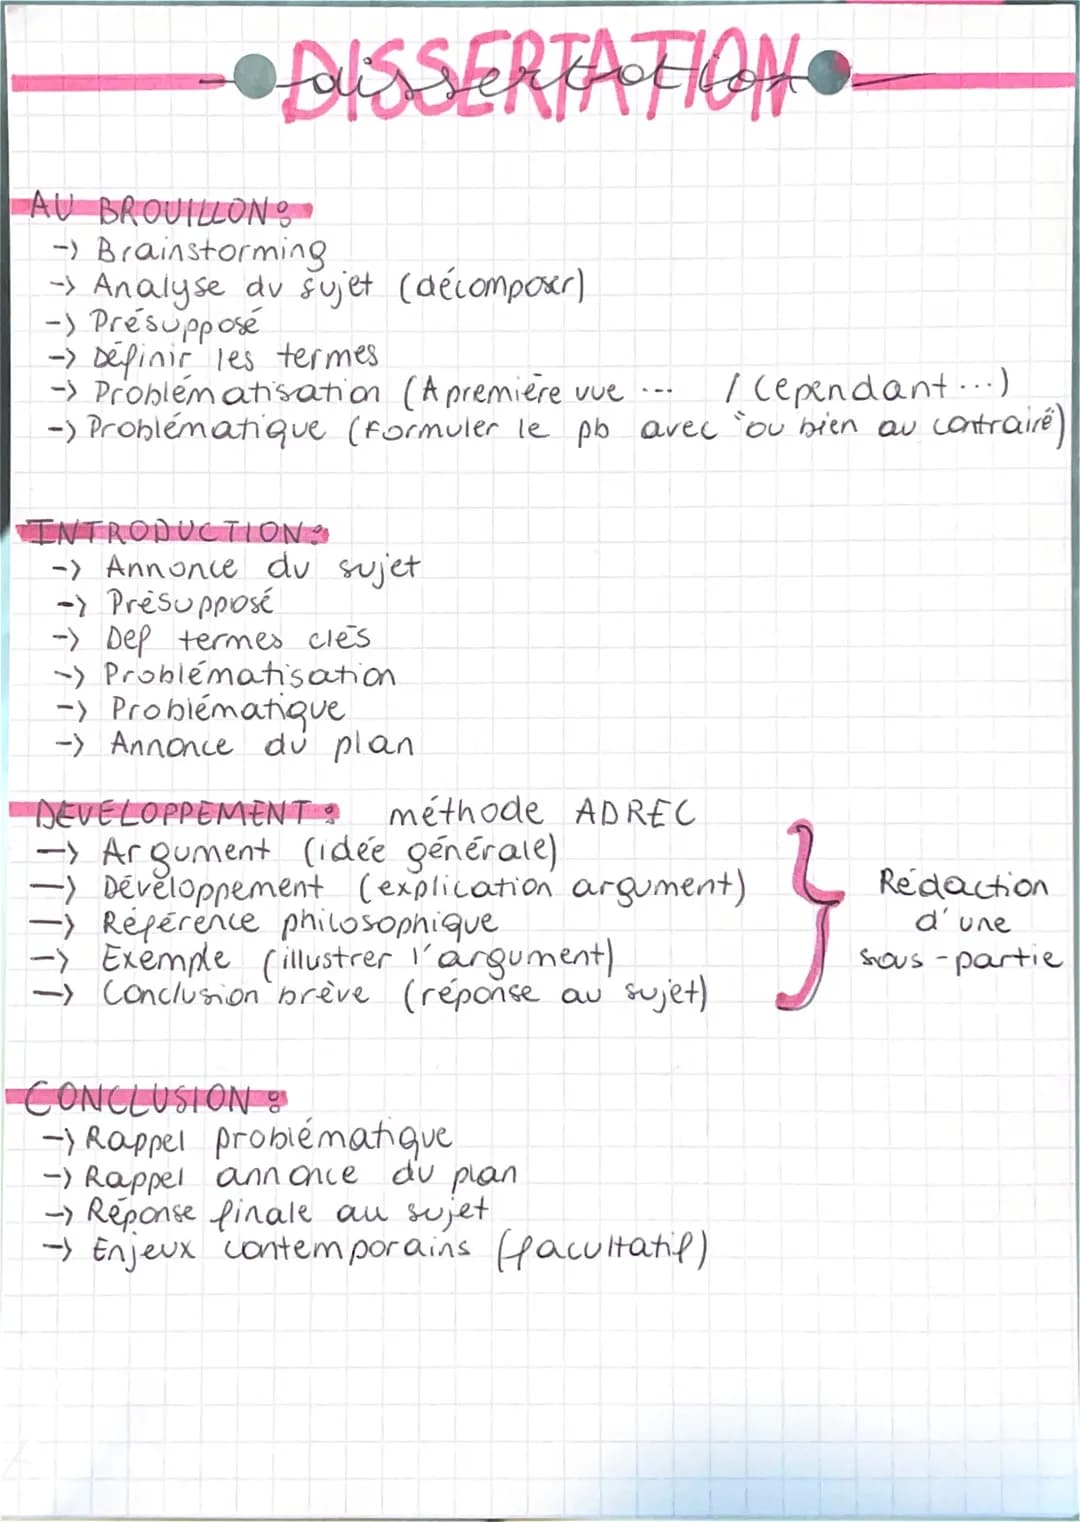 DISSERTATION
dissertation
AU BROUILLON :
-> Brainstorming
-> Analyse du sujet (décomposer)
-> Présupposé
-> Définir les termes
-> Problématisation (A première vue ... / Cependant ...)
-> Problématique (formuler le pb avec "ou bien au contraire")
INTRODUCTION :
-> Annonce du sujet
-> Présupposé
-> Def termes clés
-> Problématisation
-> Problématique
-> Annonce du plan
DEVELOPPEMENT : méthode ADREC
-> Argument (idée générale)
-> Développement (explication argument)
-> Référence philosophique
-> Exemple (illustrer l'argument)
-> Conclusion brève (réponse au sujet)
Rédaction
d'une
sous-partie
CONCLUSION :
-> Rappel problématique
-> Rappel annonce du plan
-> Réponse finale au sujet
-> Enjeux contemporains (facultatif)